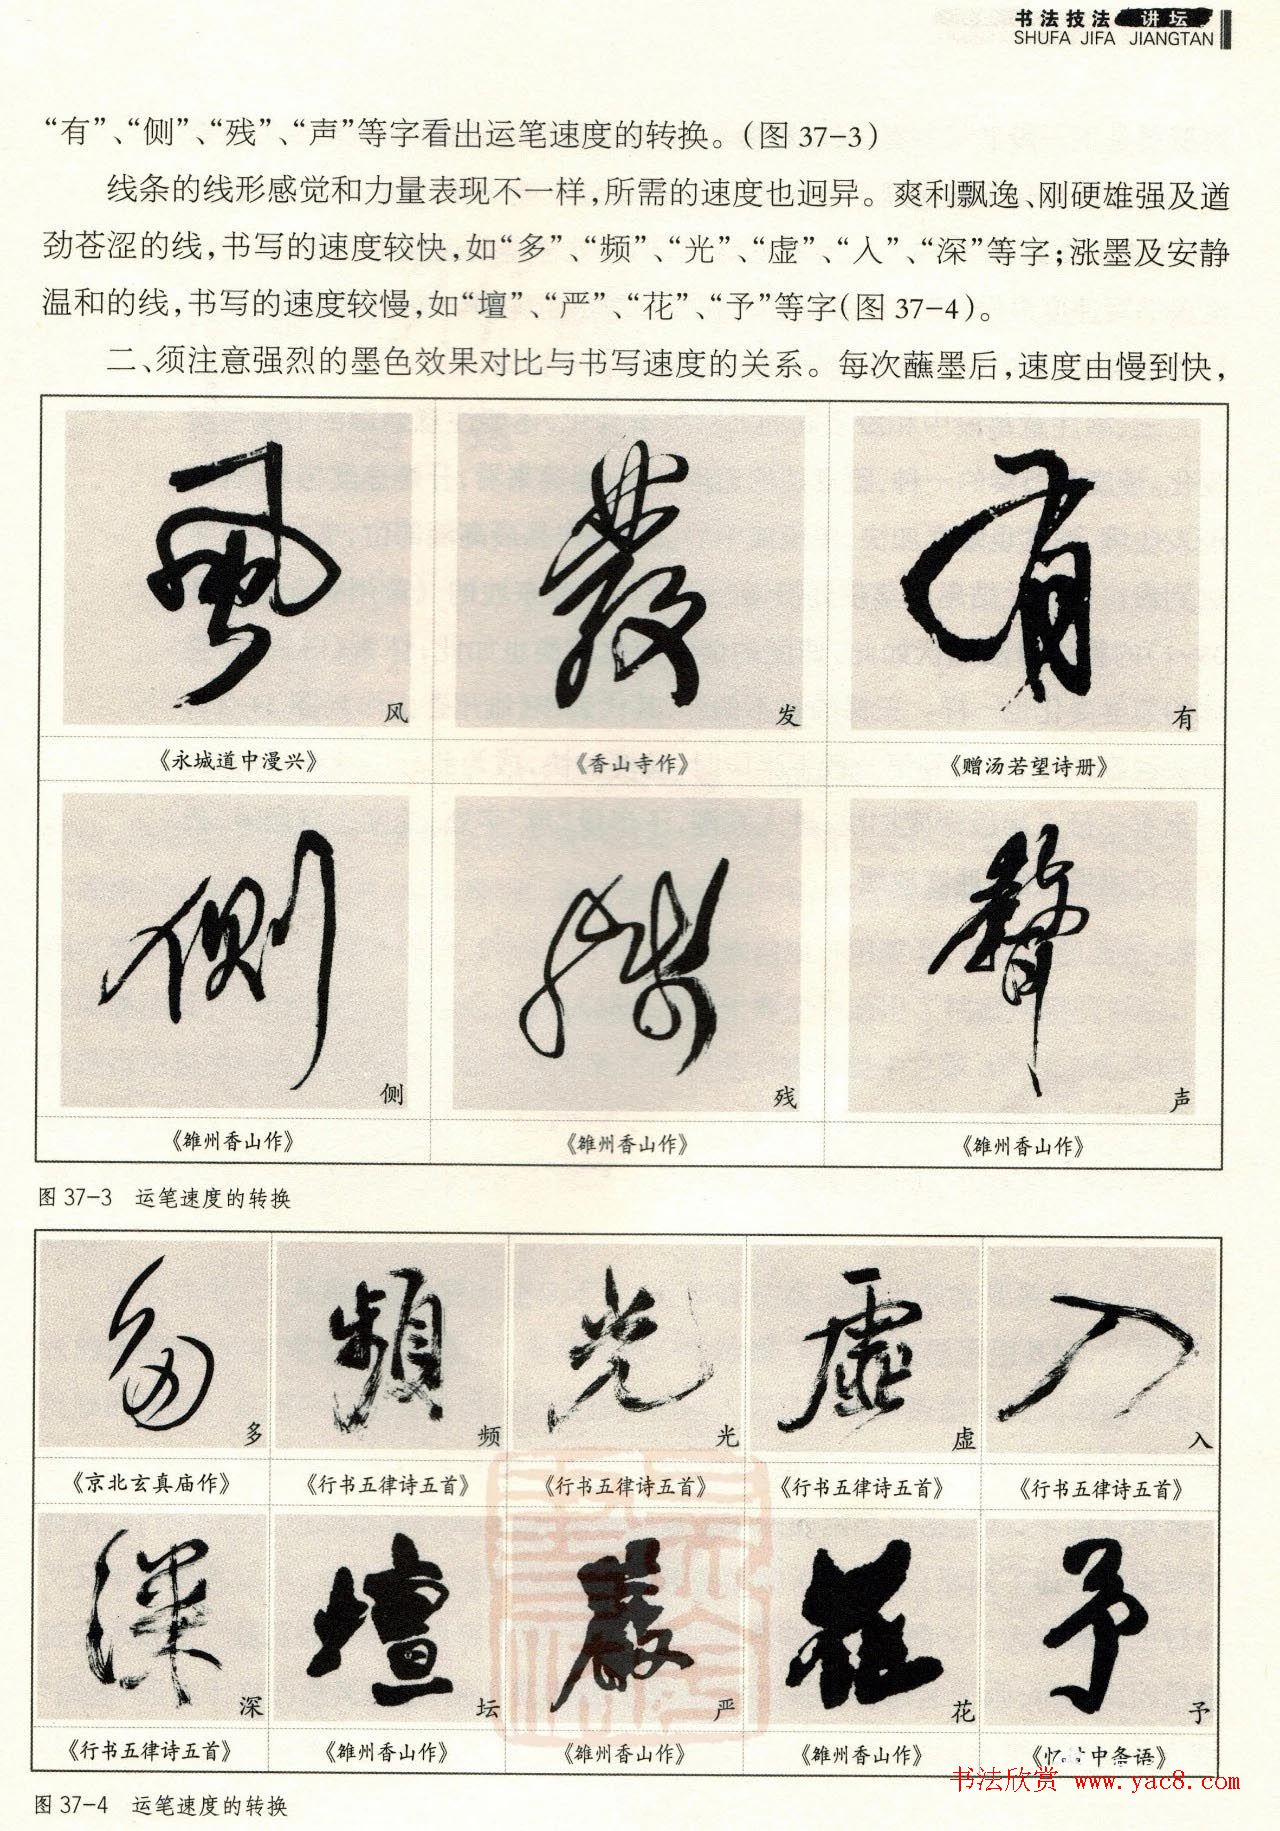 书法技法 讲坛
SHUFA JIFA JIANGTAN
“有”、“侧”、“残”、“声”等字看出运笔速度的转换。（图 37-3）
线条的线形感觉和力量表现不一样，所需的速度也迥异。爽利飘逸、刚硬雄强及遒
劲苍涩的线，书写的速度较快，如“多”、“频”、“光”、“虚”、“入”、“深”等字；涨墨及安静
温和的线，书写的速度较慢，如“壇”、“严”、“花”、“予”等字（图 37-4）。
二、须注意强烈的墨色效果对比与书写速度的关系。每次蘸墨后，速度由慢到快，
風 發 有
风 发 有
《永城道中漫兴》 《香山寺作》 《赠汤若望诗册》
側 殘 聲
侧 残 声
《雒州香山作》 《雒州香山作》 《雒州香山作》
图 37-3 运笔速度的转换
多 頻 光 虛 入
多 频 光 虚 入
《京北玄真庙作》 《行书五律诗五首》 《行书五律诗五首》 《行书五律诗五首》 《行书五律诗五首》
深 壇 嚴 花 予
深 坛 严 花 予
《行书五律诗五首》 《雒州香山作》 《雒州香山作》 《雒州香山作》 《中条语》
书法欣赏 www.yac8.com
图 37-4 运笔速度的转换